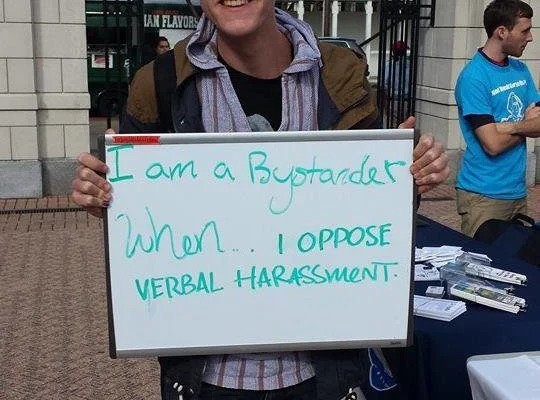 IAN FLAVORS
I am a Bystander
When.. I OPPOSE
VERBAL HARASSMENT.